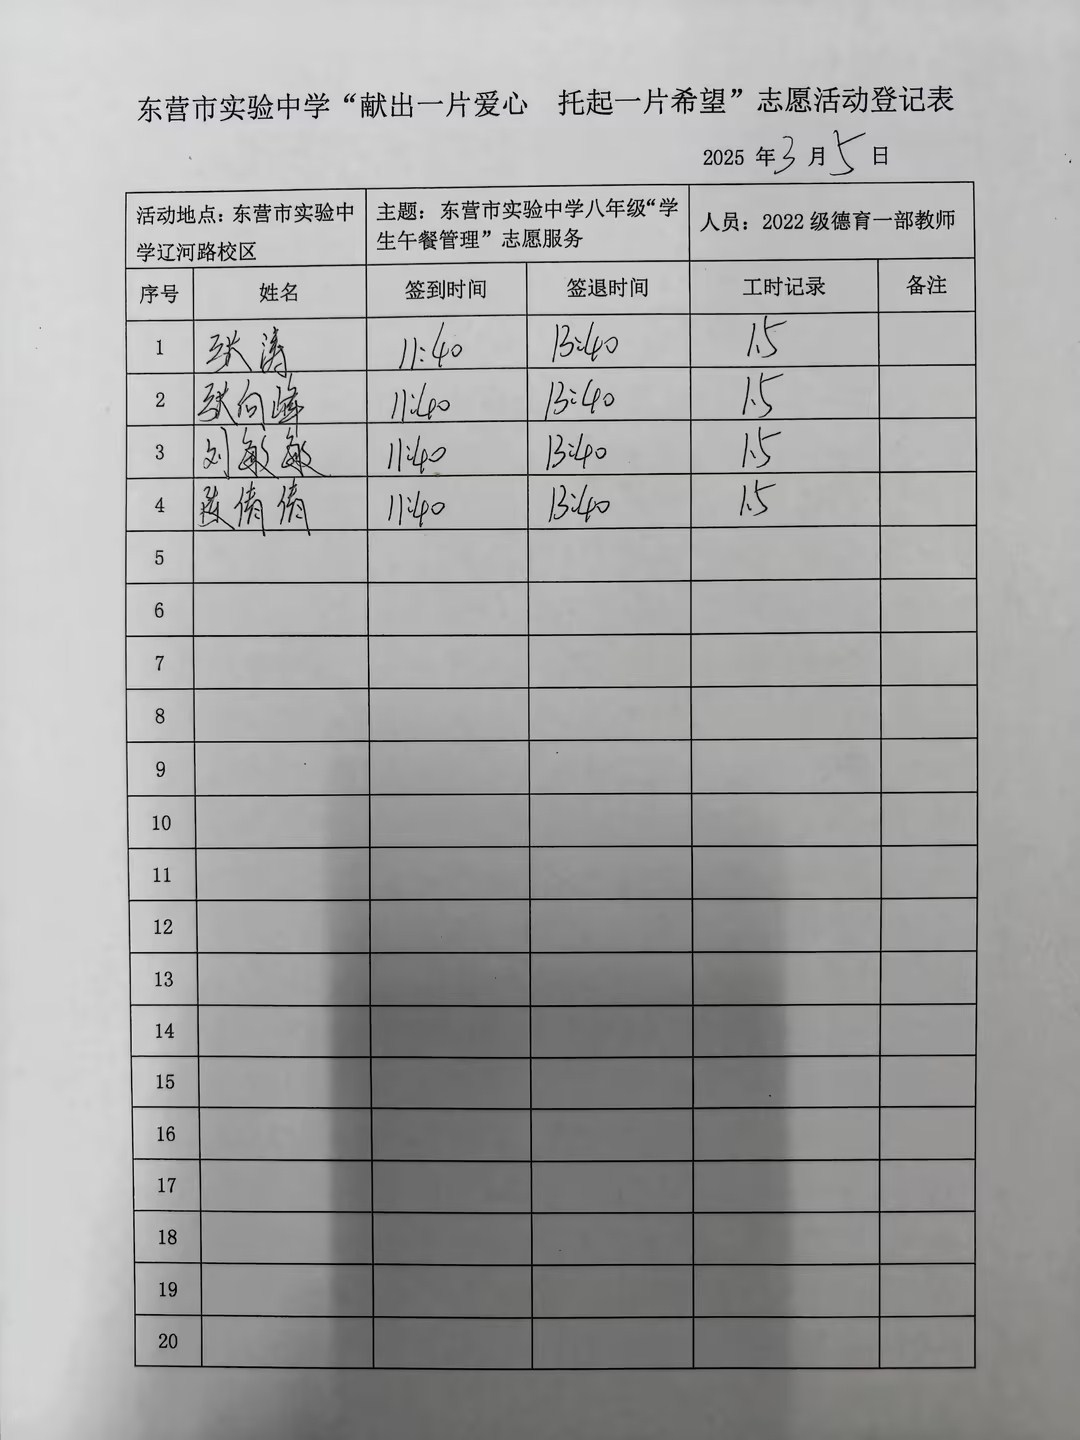 东营市实验中学“献出一片爱心 托起一片希望”志愿活动登记表
2025 年 3 月 5 日
活动地点：东营市实验中学辽河路校区 主题：东营市实验中学八年级“学生午餐管理”志愿服务 人员：2022 级德育一部教师
序号 姓名 签到时间 签退时间 工时记录 备注
1 张涛 11:40 13:40 1.5
2 张向峰 11:40 13:40 1.5
3 刘敏敏 11:40 13:40 1.5
4 陈倩倩 11:40 13:40 1.5
5
6
7
8
9
10
11
12
13
14
15
16
17
18
19
20